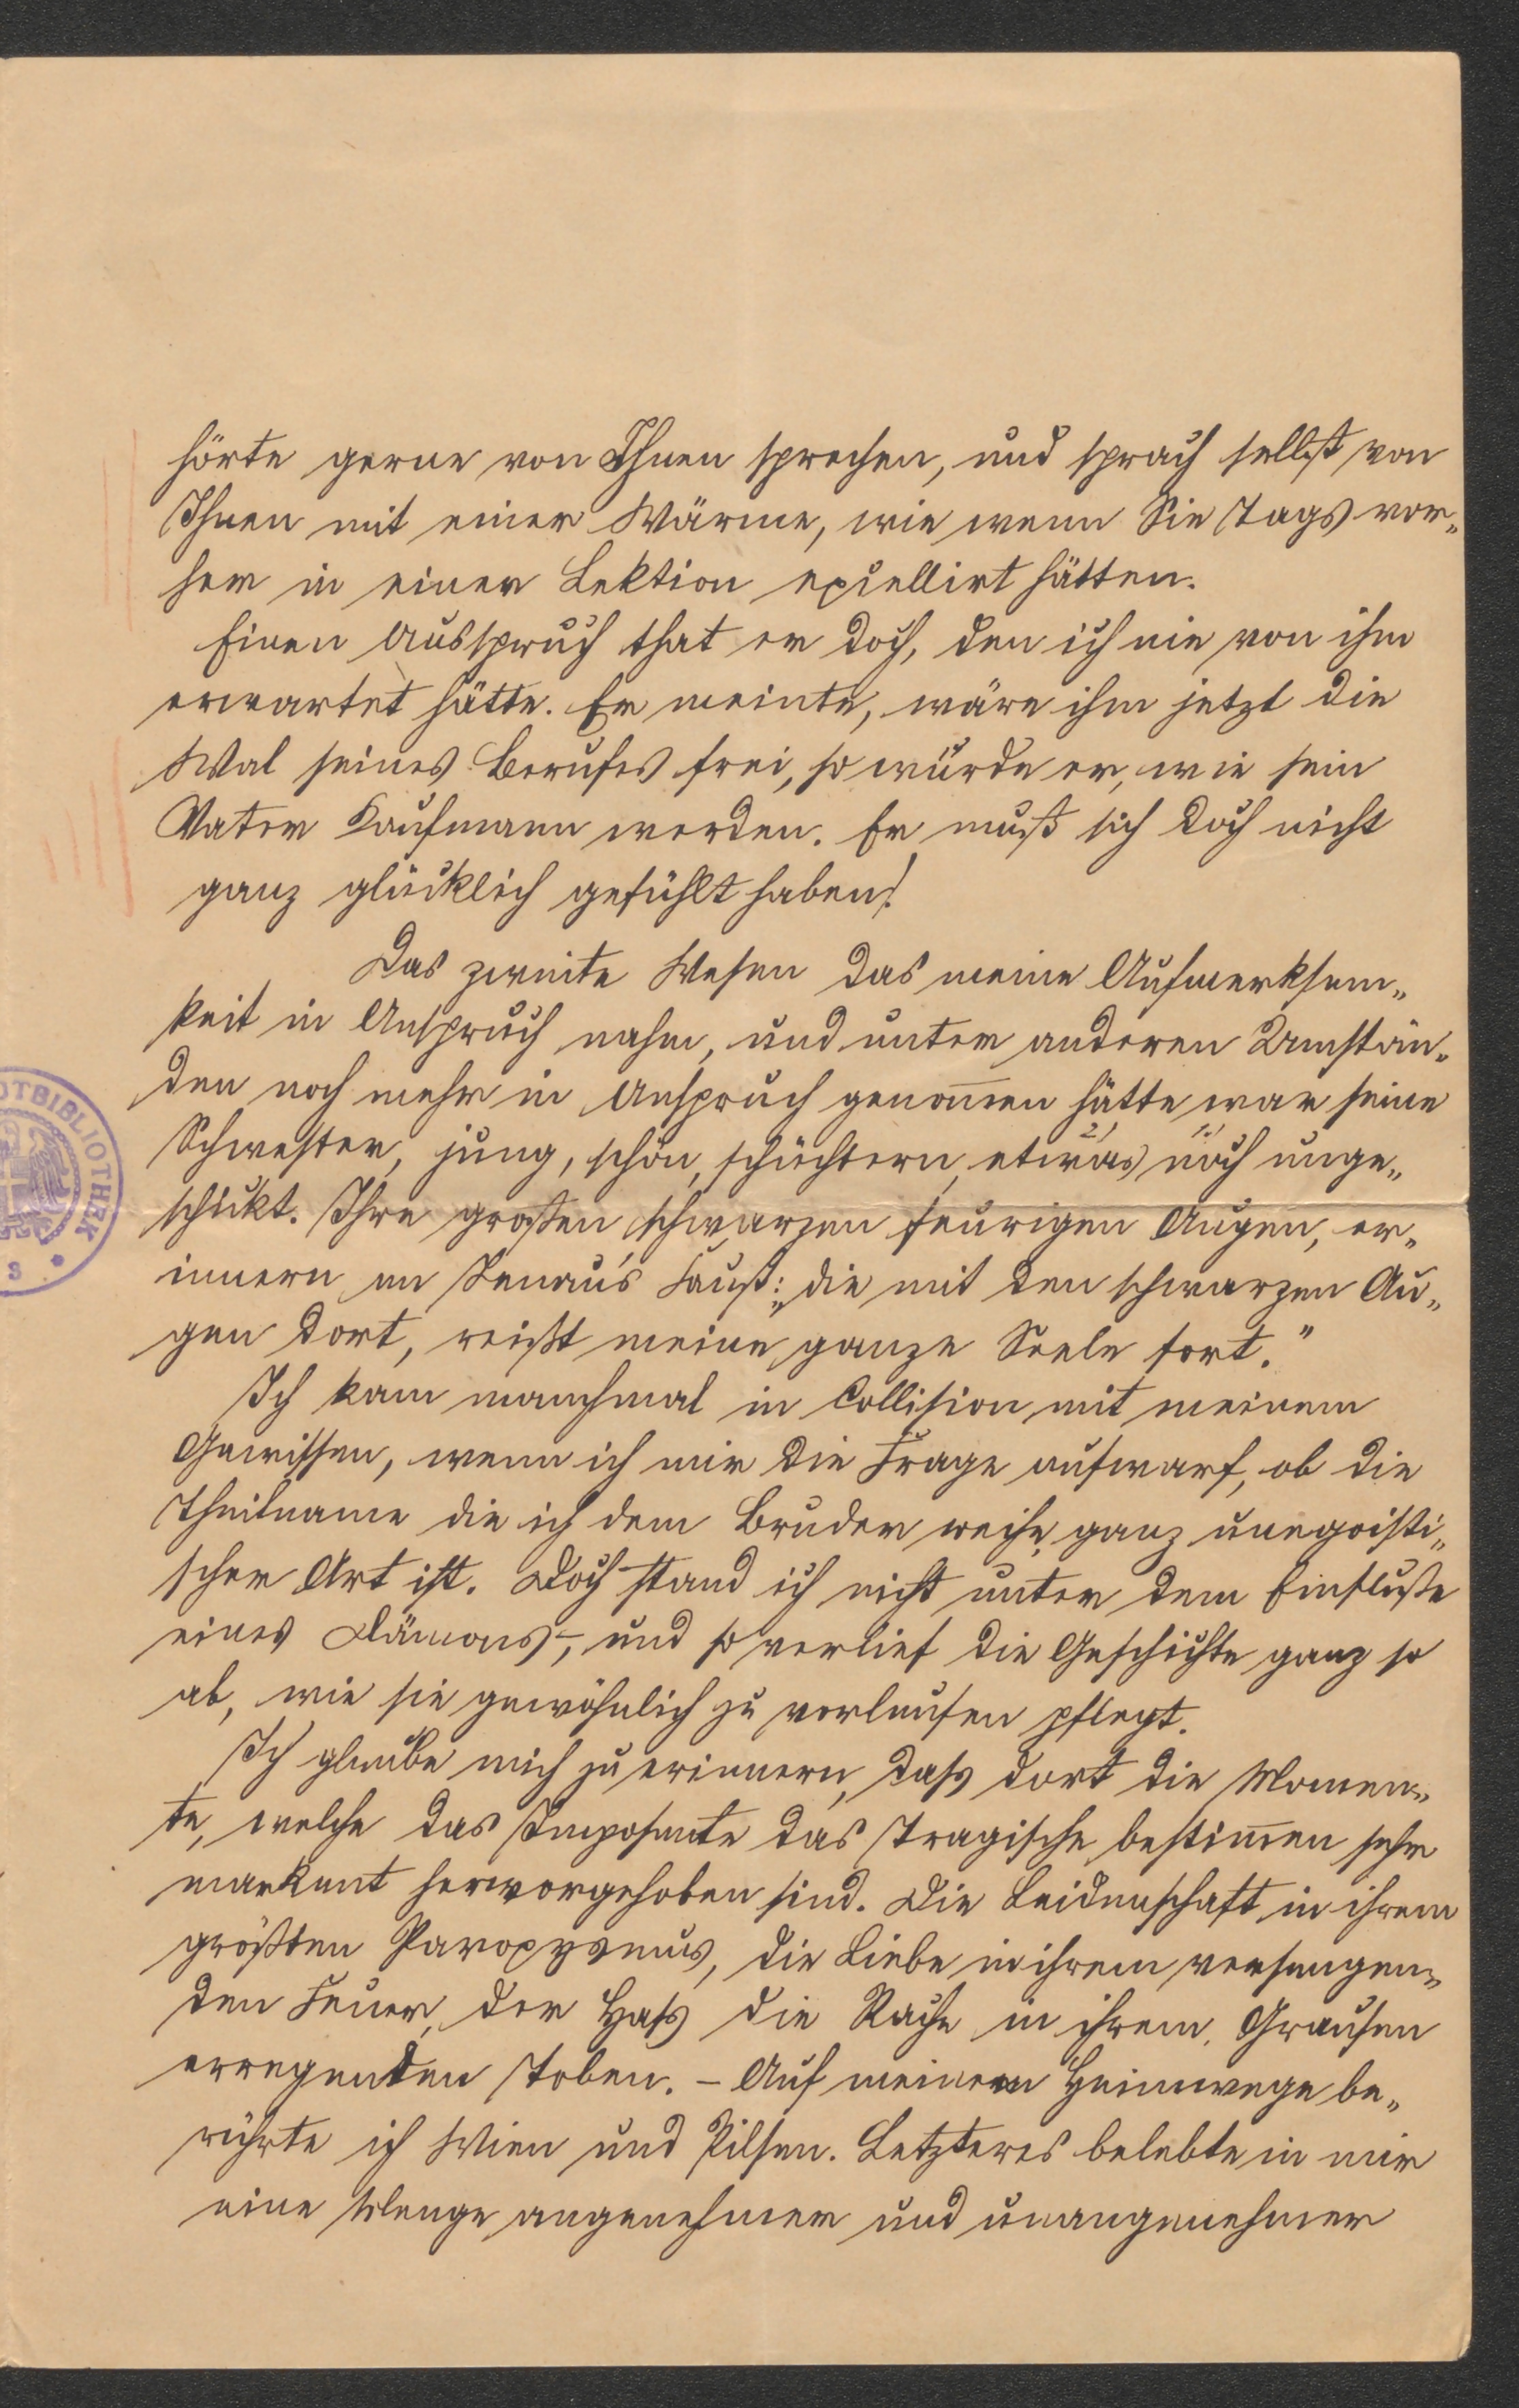 hörte gerne von Ihnen sprechen, und sprach selbst von
Ihnen mit einer Wärme, wie wenn Sie Tags vor„
her in einer Lektion excellirt hätten.
Einen Ausspruch that er doch, den ich nie von ihm
erwartet hätte. Er meinte, wäre ihm jetzt die
Wal seines Berufes frei, so würde er, wie sein
Vater Kaufmann werden. Er muß sich doch nicht
ganz glücklich gefühlt haben!
Das zweite Wesen das meine Aufmerksam„
keit in Anspruch nahm, und unter anderen Umstän„
den noch mehr in Anspruch genom̅en hätte war seine
Schwester, jung, schön, schüchtern, etwas noch unge„
schickt. Ihre großen schwarzen feurigen Augen, er„
innern an Lenau's Faust: „die mit den schwarzen Au„
gen dort, reißt meine ganze Seele fort."
Ich kam manchmal in Collision mit meinem
Gewissen, wenn ich mir die Frage aufwarf, ob die
Theilname die ich dem Bruder weihe, ganz unegoisti„
scher Art ist. Doch stand ich nicht unter dem Einfluße
eines Dämons, und so verlief die Geschichte ganz so
ab, wie sie gewöhnlich zu verlaufen pflegt.
Ich glaube mich zu erinnern, dass dort die Momen„
te, welche das Imposante das Tragische bestim̅en sehr
markant hervorgehoben sind. Die Leidenschaft in ihrem
größten Paroxysmus, die Liebe in ihrem versengen„
den Feuer, der Hass die Rache in ihrem, Grausen
erregenden Toben. – Auf meinem Heimwege be„
rührte ich Wien und Pilsen. Letzteres belebte in mir
eine Menge angenehmer und unangenehmer
OTBIBLIOTHEK
S